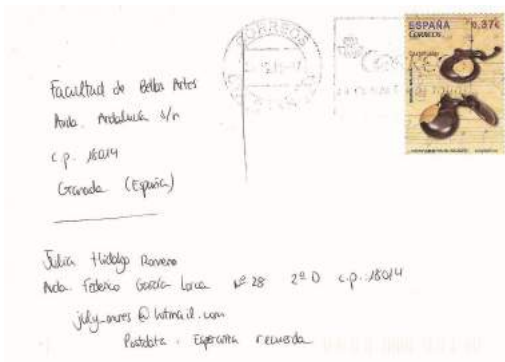 ESPAÑA 0,37€
CORREOS
CORREOS
Facultad de Bellas Artes
Avda. Andalucía s/n
c.p. 18014
Granada (España)
Julia Hidalgo Romero
Avda. Federico García Lorca Nº 28 2º D c.p. 18014
@hotmail.com
Postdata: Esperanza recuerda